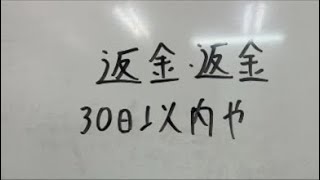 返金・返金
30日以内や